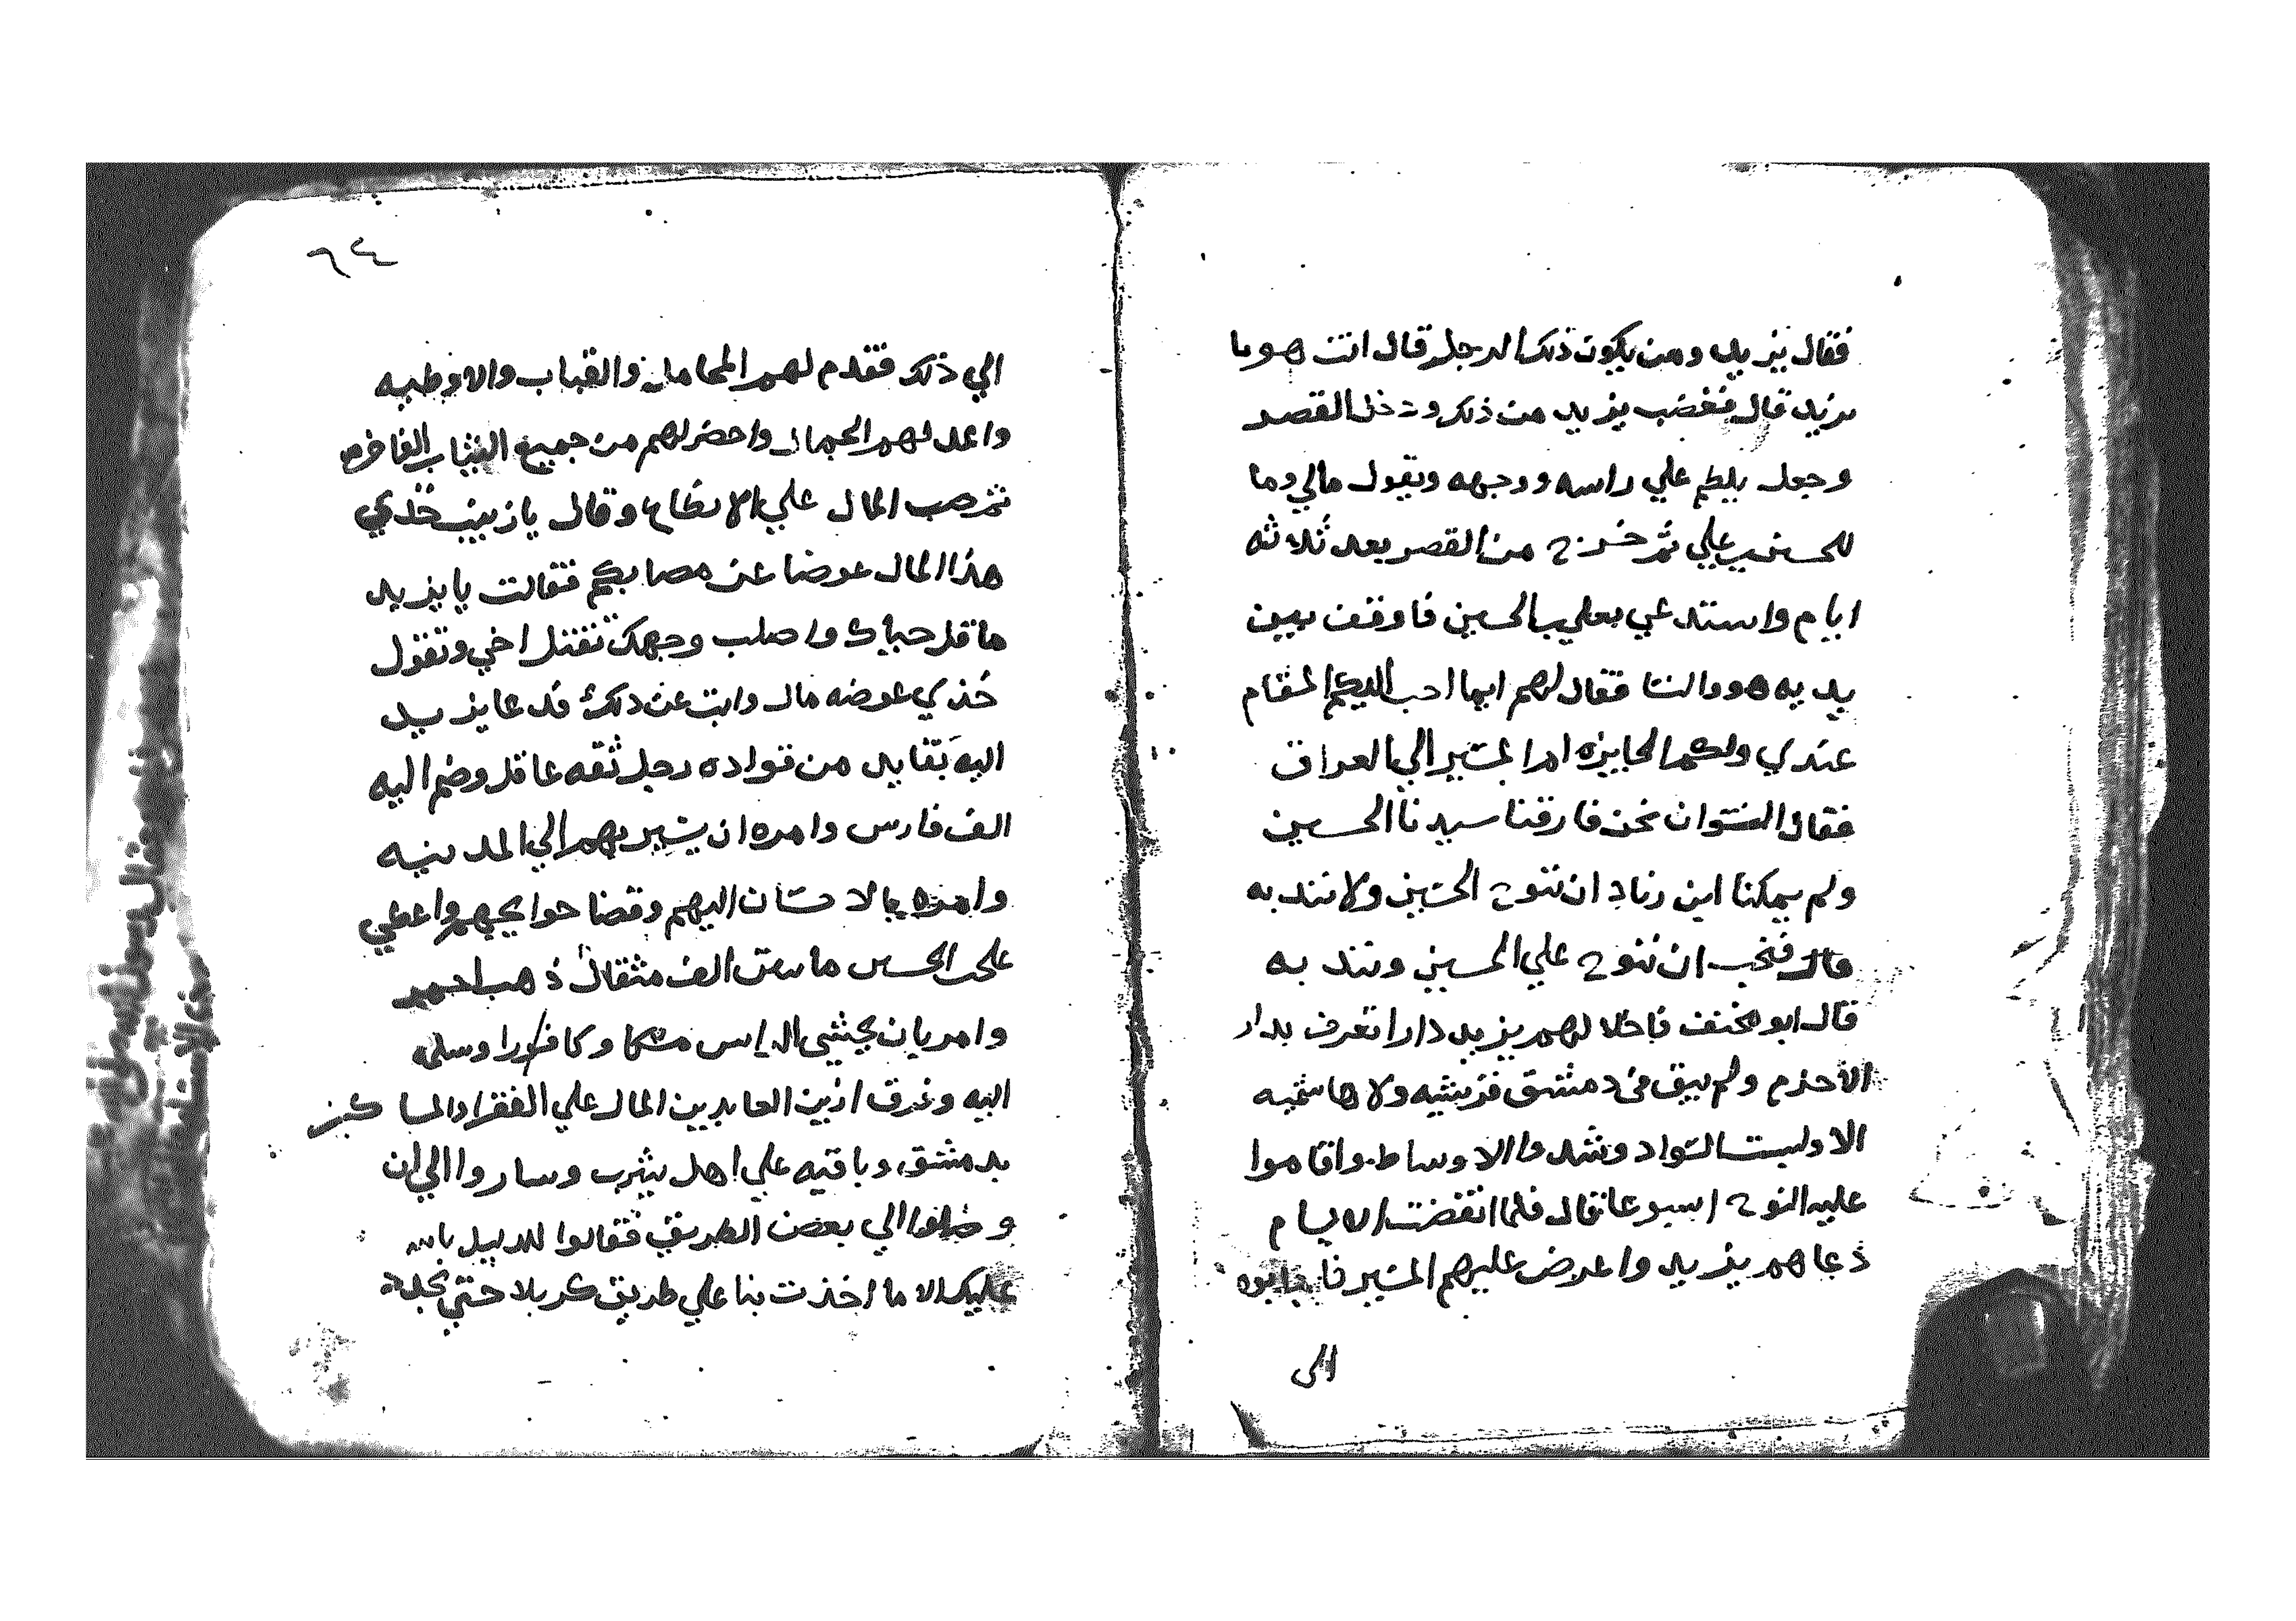 فقال يزيد ومن يكون ذلك الرجل قال انت هو يا
يزيد قال فغضب يزيد من ذلك ودخل القصر
وجعل يلطم علي راسه ووجهه ويقول مالي وما
للحسين بن علي ثم خرج من القصر بعد ثلاثه
ايام واستدعي بعلي بن الحسين فاوقف بين
يديه هو والنسا فقال لهم ايما احب اليكم المقام
عندي ولكم الجايزه ام المسير الي العراق
فقال النسوان نحن فارقنا سيدنا الحسين
ولم يمكنا ابن زياد ان ننوح الحسين ولا نندبه
قال فنحب ان ننوح علي الحسين ونندبه
قال ابو مخنف فاخلا لهم يزيد دارا تعرف بدار
الاحزم ولم يبق في دمشق قريشيه ولا هاشميه
الا ولبست السواد وشدوا الاوساط واقاموا
عليه النوح اسبوعا قال فلما انقضت الايام
دعاهم يزيد واعرض عليهم المسير فاجابوه
الي
٦٤
الي ذلك فقدم لهم المحامل والقباب والاوطيه
واعد لهم الجمال واحضر لهم من جميع الثياب الفاخره
ثم صب المال علي الانطاع وقال يا زينب خذي
هذا المال عوضا عن مصابكم فقالت يا يزيد
ما اقل حياك واصلب وجهك تقتل اخي وتقول
خذي عوضه مال وابت عن ذلك فدعا يزيد
اليه بقايد من قواده رجل ثقه عاقل وضم اليه
الف فارس وامره ان يسير بهم الي المدينه
وامره بالاحسان اليهم وقضا حوايجهم واعطي
علي بن الحسين مايتي الف مثقال ذهب احمر
وامر بان يحشي الراس مسكا وكافورا وسلمه
اليه وفرق زين العابدين المال علي الفقرا والمساكين
بدمشق وباقيه علي اهل يثرب وساروا الي ان
وصلوا الي بعض الطريق فقالوا للدليل بالله
عليك الا ما اخذت بنا علي طريق كربلا حتي نجدد